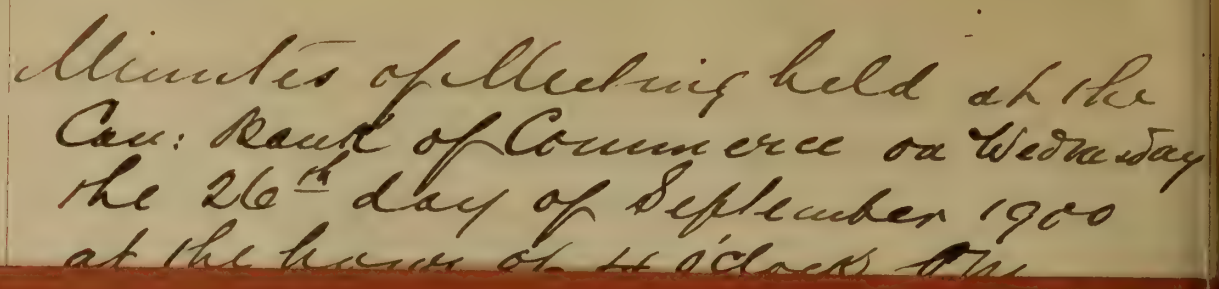 Minutes of Meeting held at the
Can: Bank of Commerce on Wednesday
the 26th day of September 1900
at the hour of 4 o'clock PM